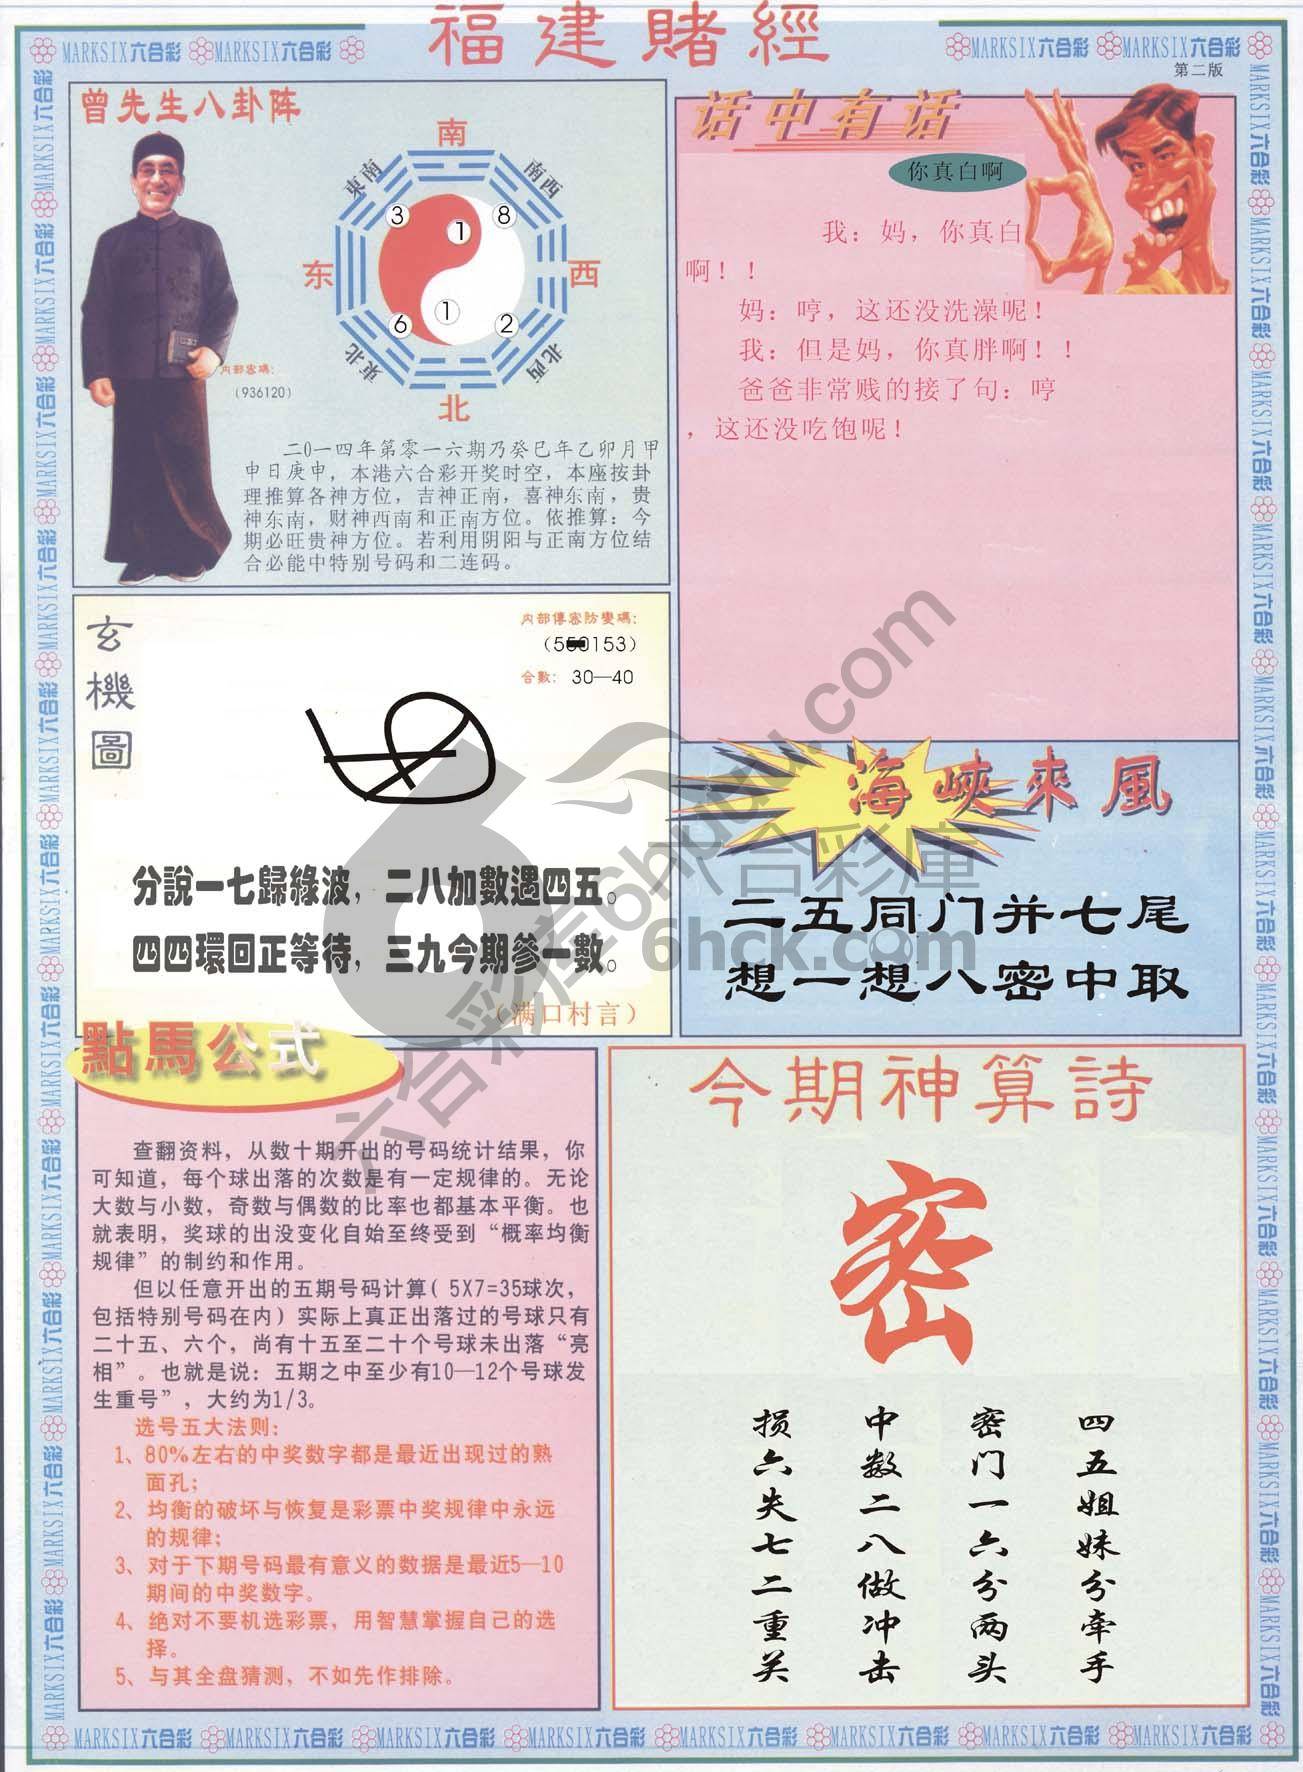 福建賭經
MARKSIX六合彩 MARKSIX六合彩
MARKSIX六合彩 MARKSIX六合彩
第二版
曾先生八卦阵
南
東南
南西
3
1
8
东
西
6
1
2
東北
北西
北
内部密碼:
(936120)
二0一四年第零一六期乃癸巳年乙卯月甲
申日庚申,本港六合彩开奖时空,本座按卦
理推算各神方位,吉神正南,喜神东南,贵
神东南,财神西南和正南方位。依推算:今
期必旺贵神方位。若利用阴阳与正南方位结
合必能中特别号码和二连码。
话中有话
你真白啊
我:妈,你真白
啊!!
妈:哼,这还没洗澡呢!
我:但是妈,你真胖啊!!
爸爸非常贱的接了句:哼
,这还没吃饱呢!
玄機圖
内部傳密防變碼:
(550153)
合數: 30—40
分說一七歸緣波,二八加數遇四五。
四四環回正等待,三九今期參一數。
(满口村言)
海峽來風
二五同门并七尾
想一想八密中取
點馬公式
查翻资料,从数十期开出的号码统计结果,你
可知道,每个球出落的次数是有一定规律的。无论
大数与小数,奇数与偶数的比率也都基本平衡。也
就表明,奖球的出没变化自始至终受到“概率均衡
规律”的制约和作用。
但以任意开出的五期号码计算(5X7=35球次,
包括特别号码在内)实际上真正出落过的号球只有
二十五、六个,尚有十五至二十个号球未出落“亮
相”。也就是说:五期之中至少有10—12个号球发
生重号”,大约为1/3。
选号五大法则:
1、80%左右的中奖数字都是最近出现过的熟
面孔;
2、均衡的破坏与恢复是彩票中奖规律中永远
的规律;
3、对于下期号码最有意义的数据是最近5—10
期间的中奖数字。
4、绝对不要机选彩票,用智慧掌握自己的选
择。
5、与其全盘猜测,不如先作排除。
今期神算詩
密
四五姐妹分牵手
密门一六分两头
中数二八做冲击
损六失七二重关
六合彩库6hhudu.com
六合彩庫
6hck.com
MARKSIX六合彩 MARKSIX六合彩 MARKSIX六合彩 MARKSIX六合彩 MARKSIX六合彩 MARKSIX六合彩 MARKSIX六合彩 MARKSIX六合彩